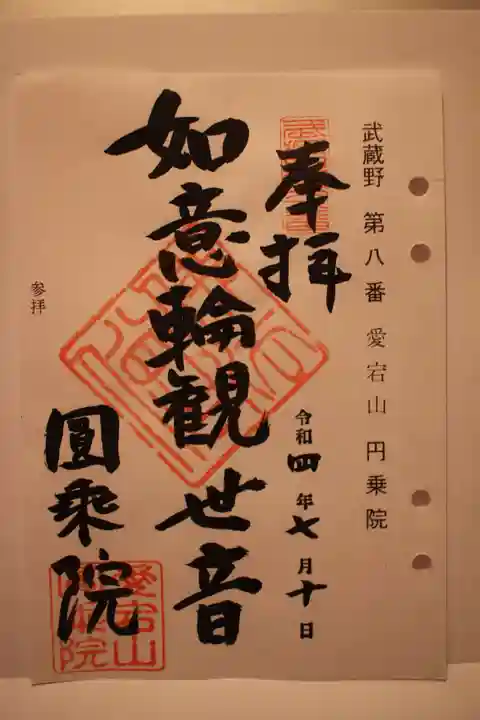 武蔵野 第八番 愛宕山 円乗院
奉拝
令和四年七月十日
如意輪観世音
圓乘院
参拝
愛宕山